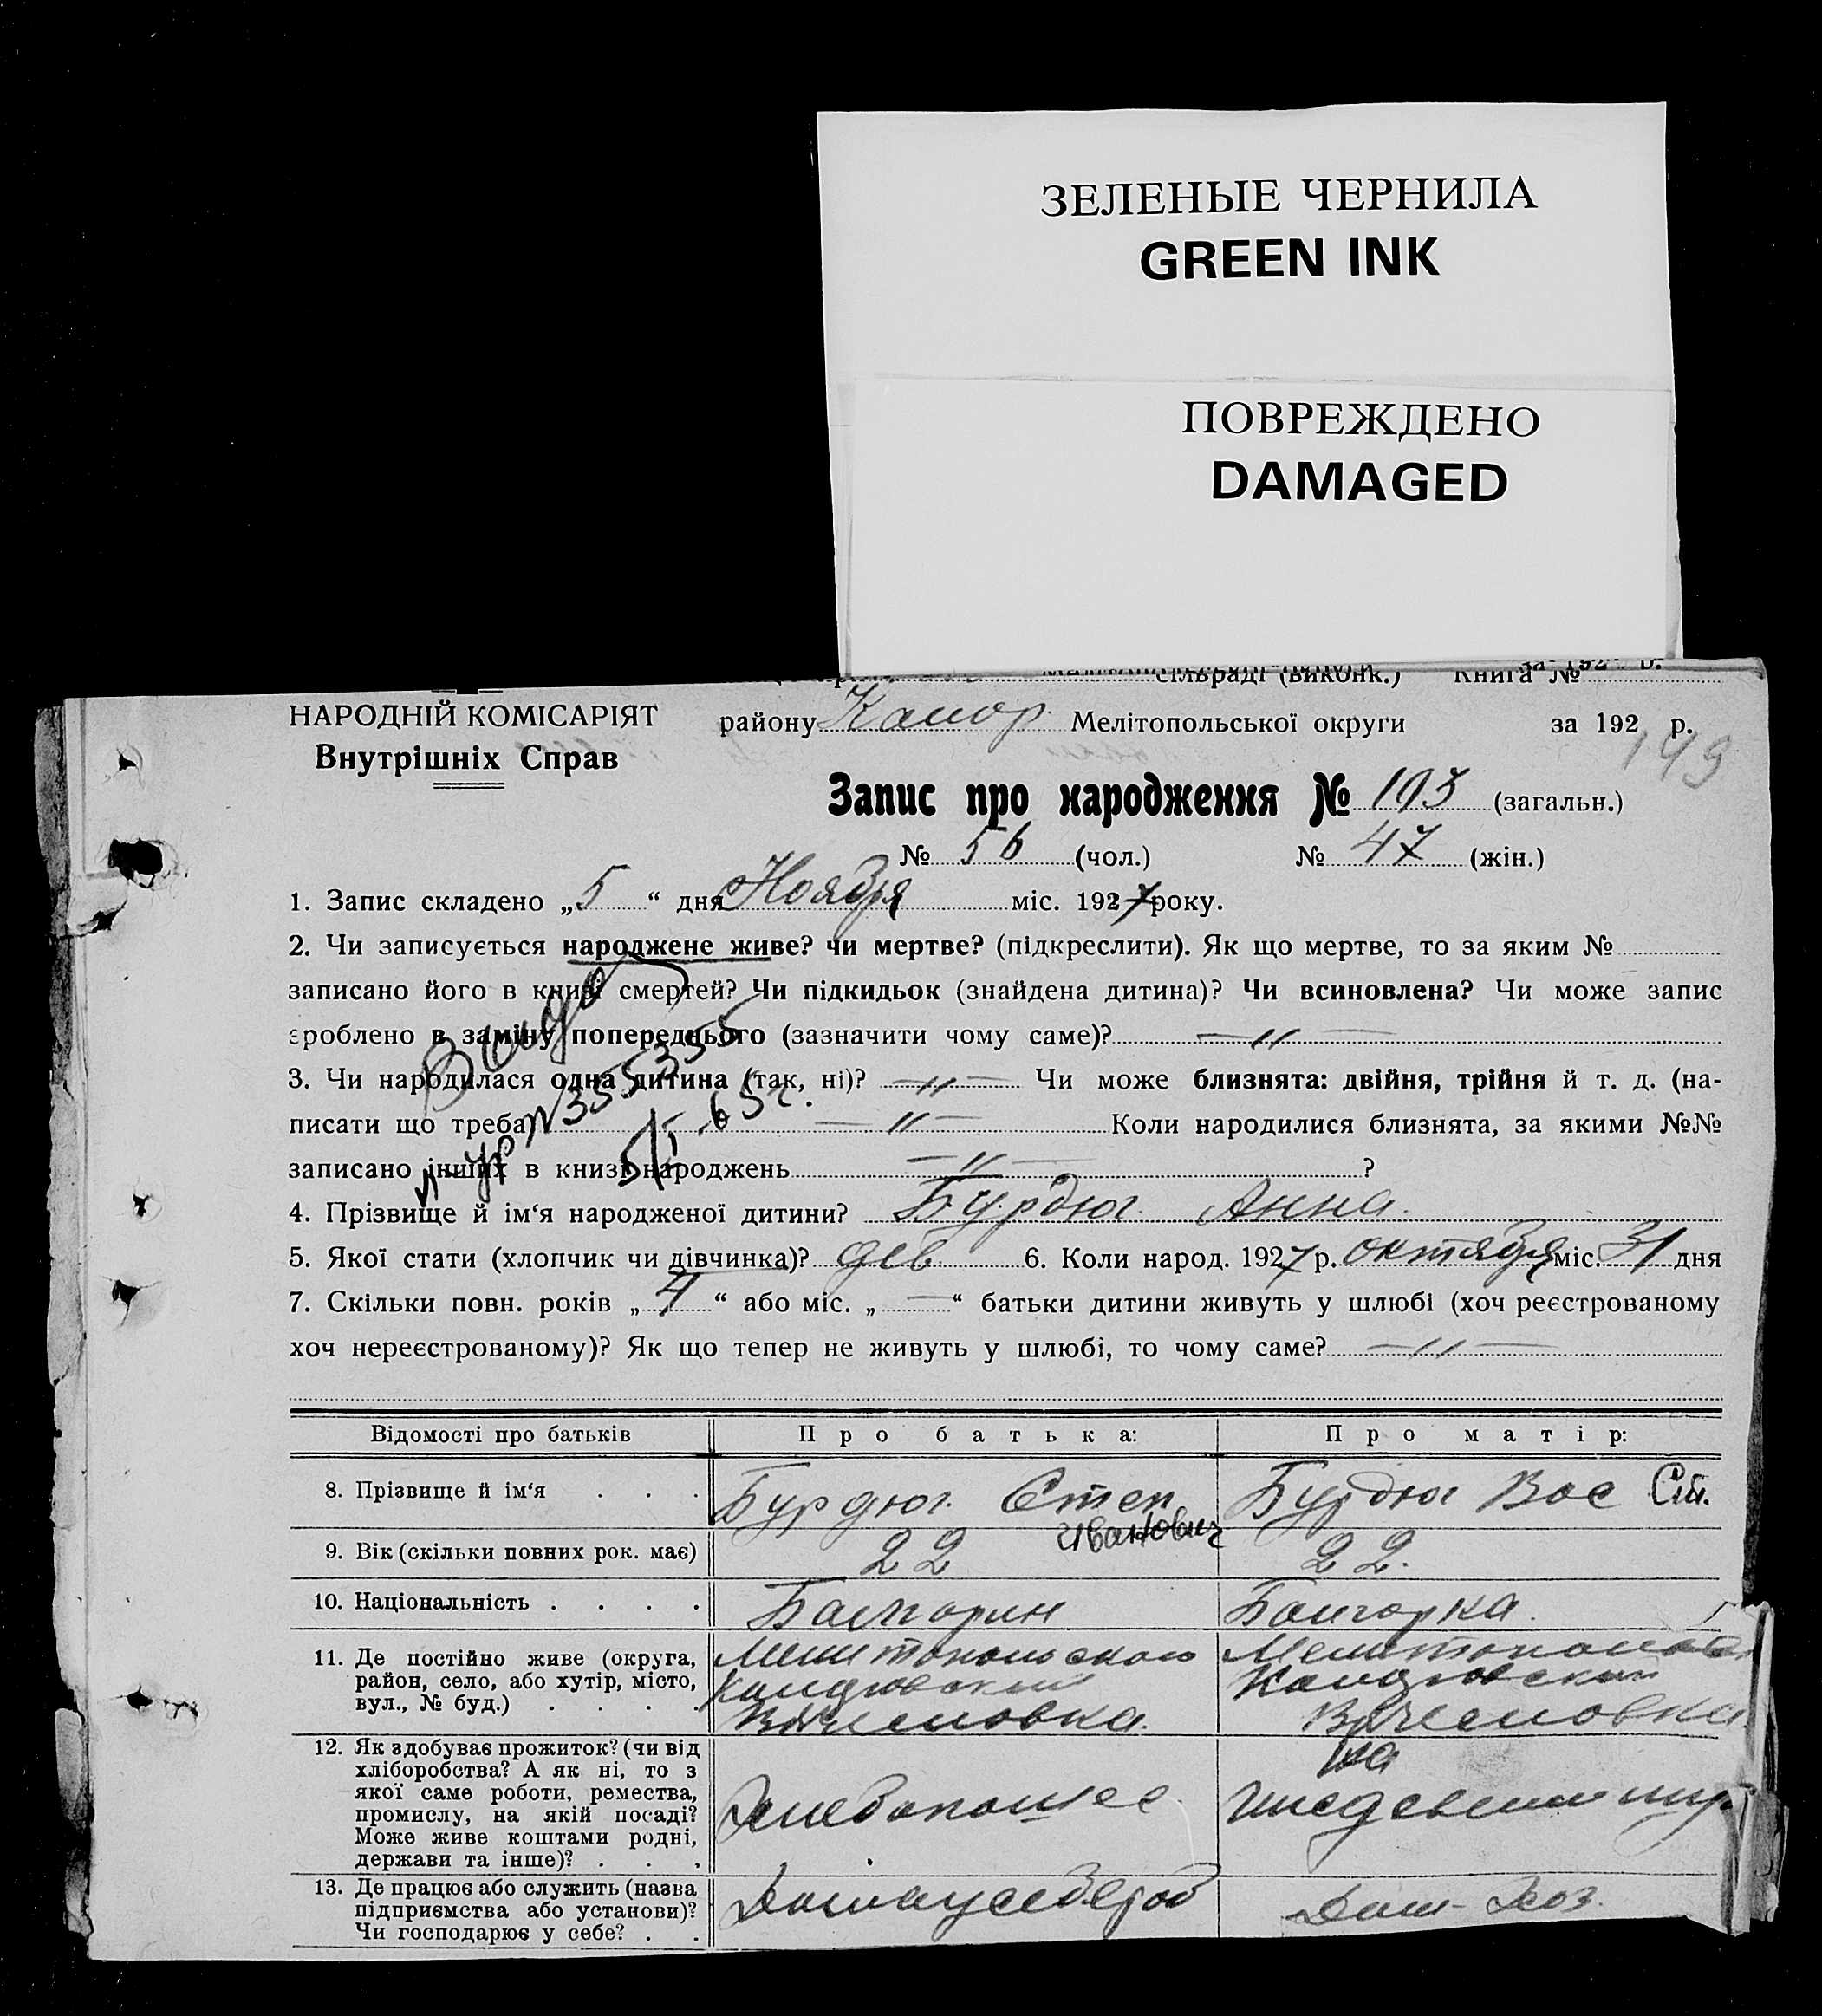 ЗЕЛЕНЫЕ ЧЕРНИЛА
GREEN INK
ПОВРЕЖДЕНО
DAMAGED
сільраді (виконк.) Книга №
НАРОДНІЙ КОМІСАРІЯТ
Внутрішніх Справ
району Мелітопольської округи за 192 р.
149
Запис про народження № 103 (загальн.)
№ 56 (чол.) № 47 (жін.)
1. Запис складено „5“ дня Ноября міс. 1927 року.
2. Чи записується народжене живе? чи мертве? (підкреслити). Як що мертве, то за яким №
записано його в книзі смертей? Чи підкидьок (знайдена дитина)? Чи всиновлена? Чи може запис
зроблено в заміну попереднього (зазначити чому саме)? — 〃 —
3. Чи народилася одна дитина (так, ні)? — 〃 — Чи може близнята: двійня, трійня й т. д. (на-
писати що треба) — 〃 — Коли народилися близнята, за якими №№
записано інших в книзі народжень — 〃 — ?
4. Прізвище й ім‘я народженої дитини? Бурдюг Анна.
5. Якої стати (хлопчик чи дівчинка)? дев 6. Коли народ. 1927 р. октября міс. 31 дня
7. Скільки повн. років „4“ або міс. „—“ батьки дитини живуть у шлюбі (хоч реєстрованому
хоч нереєстрованому)? Як що тепер не живуть у шлюбі, то чому саме? — 〃 —
№ 355355
5/I-65г.
Відомості про батьків Про батька: Про матір:
8. Прізвище й ім‘я . . . Бурдюг Степ Иванович Бурдюг Вас
9. Вік (скільки повних рок. має) 22 22.
10. Національність . . . . Балгарин Балгарка.
11. Де постійно живе (округа,
район, село, або хутір, місто,
вул., № буд.) . . . .
12. Як здобуває прожиток? (чи від
хліборобства? А як ні, то з
якої саме роботи, ремества,
промислу, на якій посаді?
Може живе коштами родні,
держави та інше)? . . .
Хлебопашес.
на иждевении муж
13. Де працює або служить (назва
підприємства або установи)?
Чи господарює у себе? . .
Дом-Хоз.